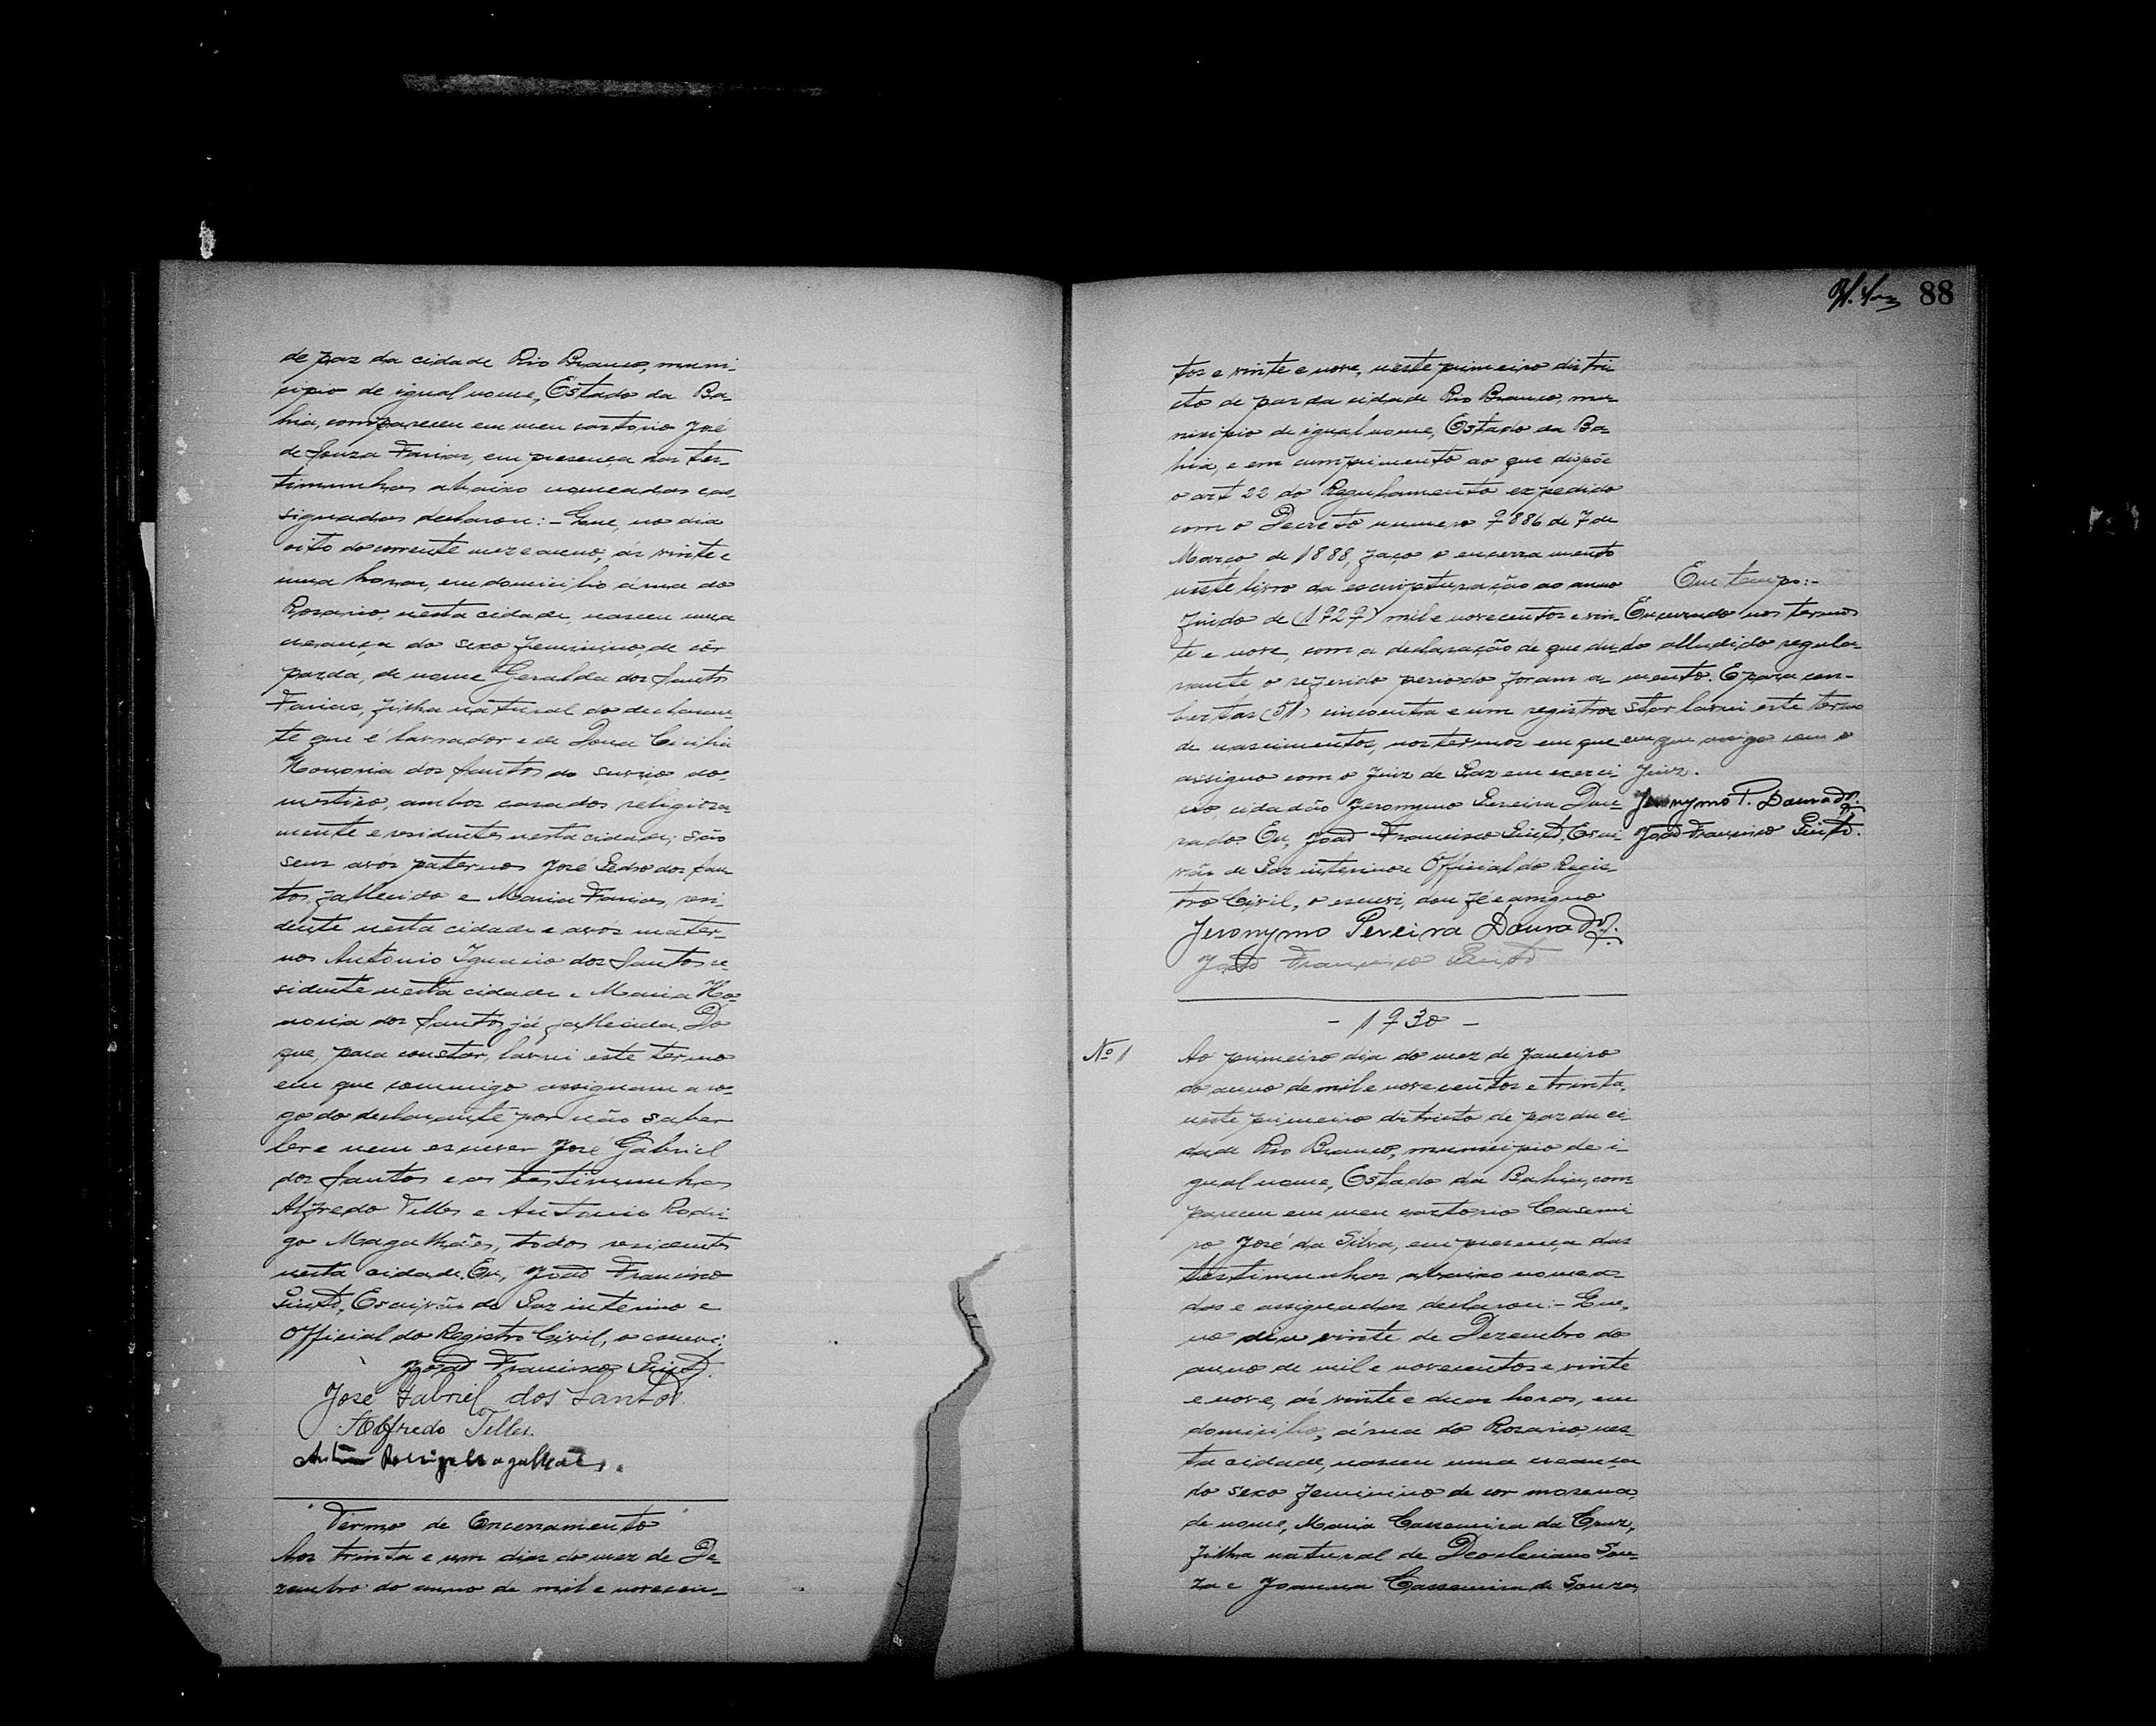 de paz da cidade Rio Branco, muni-
cipio de igual nome, Estado da Ba-
hia, compareceu em meu cartorio José
de Souza Farias, em presença das tes-
timunhas abaixo nomeadas e as-
signadas declarou: - Que, no dia
oito do corrente mez e anno, ás vinte e
uma horas, em domicilio á rua do
Rosario, nesta cidade, nasceu uma
creança do sexo feminino, de côr
parda, de nome Geralda dos Santos
Farias, filha natural do declaran-
te que é lavrador e de Dona Cicilia
Honoria dos Santos do serviço do-
mestico, ambos casados religiosa-
mente e residentes nesta cidade; são
seus avós paternos José Pedro dos San-
tos, fallecido e Maria Farias, resi-
dente nesta cidade e avós mater-
nos Antonio Ignacio dos Santos re-
sidente nesta cidade e Maria Ho-
noria dos Santos, já fallecida. Do
que, para constar, lavrei este termo
em que commigo assignam a ro-
go do declarante por não saber
ler e nem escrever José Gabriel
dos Santos e as testimunhas
Alfredo Telles e Antonio Rodri-
go Magalhães, todos residentes
nesta cidade. Eu, João Francisco
Pinto, Escrivão de Paz interino e
Official do Registro Civil, o escrevi.
João Francisco Pinto.
José Gabriel dos Santos
Alfredo Telles
Antonio Rodrigo Magalhães.
"Termo de Encerramento"
Aos trinta e um dias do mez de De-
zembro do anno de mil e novecen-
88
tos e vinte e nove, neste primeiro distri-
cto de paz da cidade Rio Branco, mu-
nicipio de igual nome, Estado da Ba-
hia, e em cumprimento ao que dispõe
o art 22 do Regulamento expedido
com o Decreto numero 9886 de 7 de
Março de 1888, faço o encerramento
neste livro da escripturação ao anno
findo de (1929) mil e novecentos e vin-
te e nove, com a declaração de que du-
rante o referido periodo foram a-
bertos (51) cincoenta e um registros
de nascimentos, nos termos em que
assigno com o Juiz de Paz em exerci-
cio, cidadão Jeronymo Pereira Dou-
rado. Eu, João Francisco Pinto, Escri-
vão de Paz interino e Official do Regis-
tro Civil, o escrevi, dou fé e assigno
Jeronymo Pereira Dourado.
João Francisco Pinto
Em tempo:-
Encerrado nos termos
do alludido regula-
mento. E para con-
star lavrei este termo
em que assigno com o
Juiz.
Jeronymo P. Dourado.
João Francisco Pinto.
- 1930 -
Nº 1
Ao primeiro dia do mez de Janeiro
do anno de mil e novecentos e trinta,
neste primeiro districto de paz da ci-
dade Rio Branco, municipio de i-
gual nome, Estado da Bahia, com-
pareceu em meu cartorio Casemi-
ro José da Silva, em presença das
testimunhas abaixo nomea-
das e assignadas declarou:- Que,
no dia vinte de Dezembro do
anno de mil e novecentos e vinte
e nove, ás vinte e duas horas, em
domicilio, á rua do Rosario, nes-
ta cidade, nasceu uma creança
do sexo feminino de cor morena,
de nome, Maria Cassemira da Cruz,
filha natural de Deocleciano Sou-
za e Joanna Cassemira de Souza,